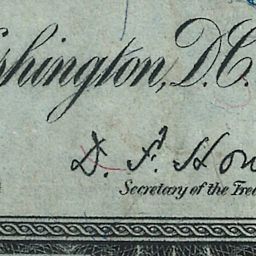 shington, D.C.
D. F. Hou
Secretary of the Trea